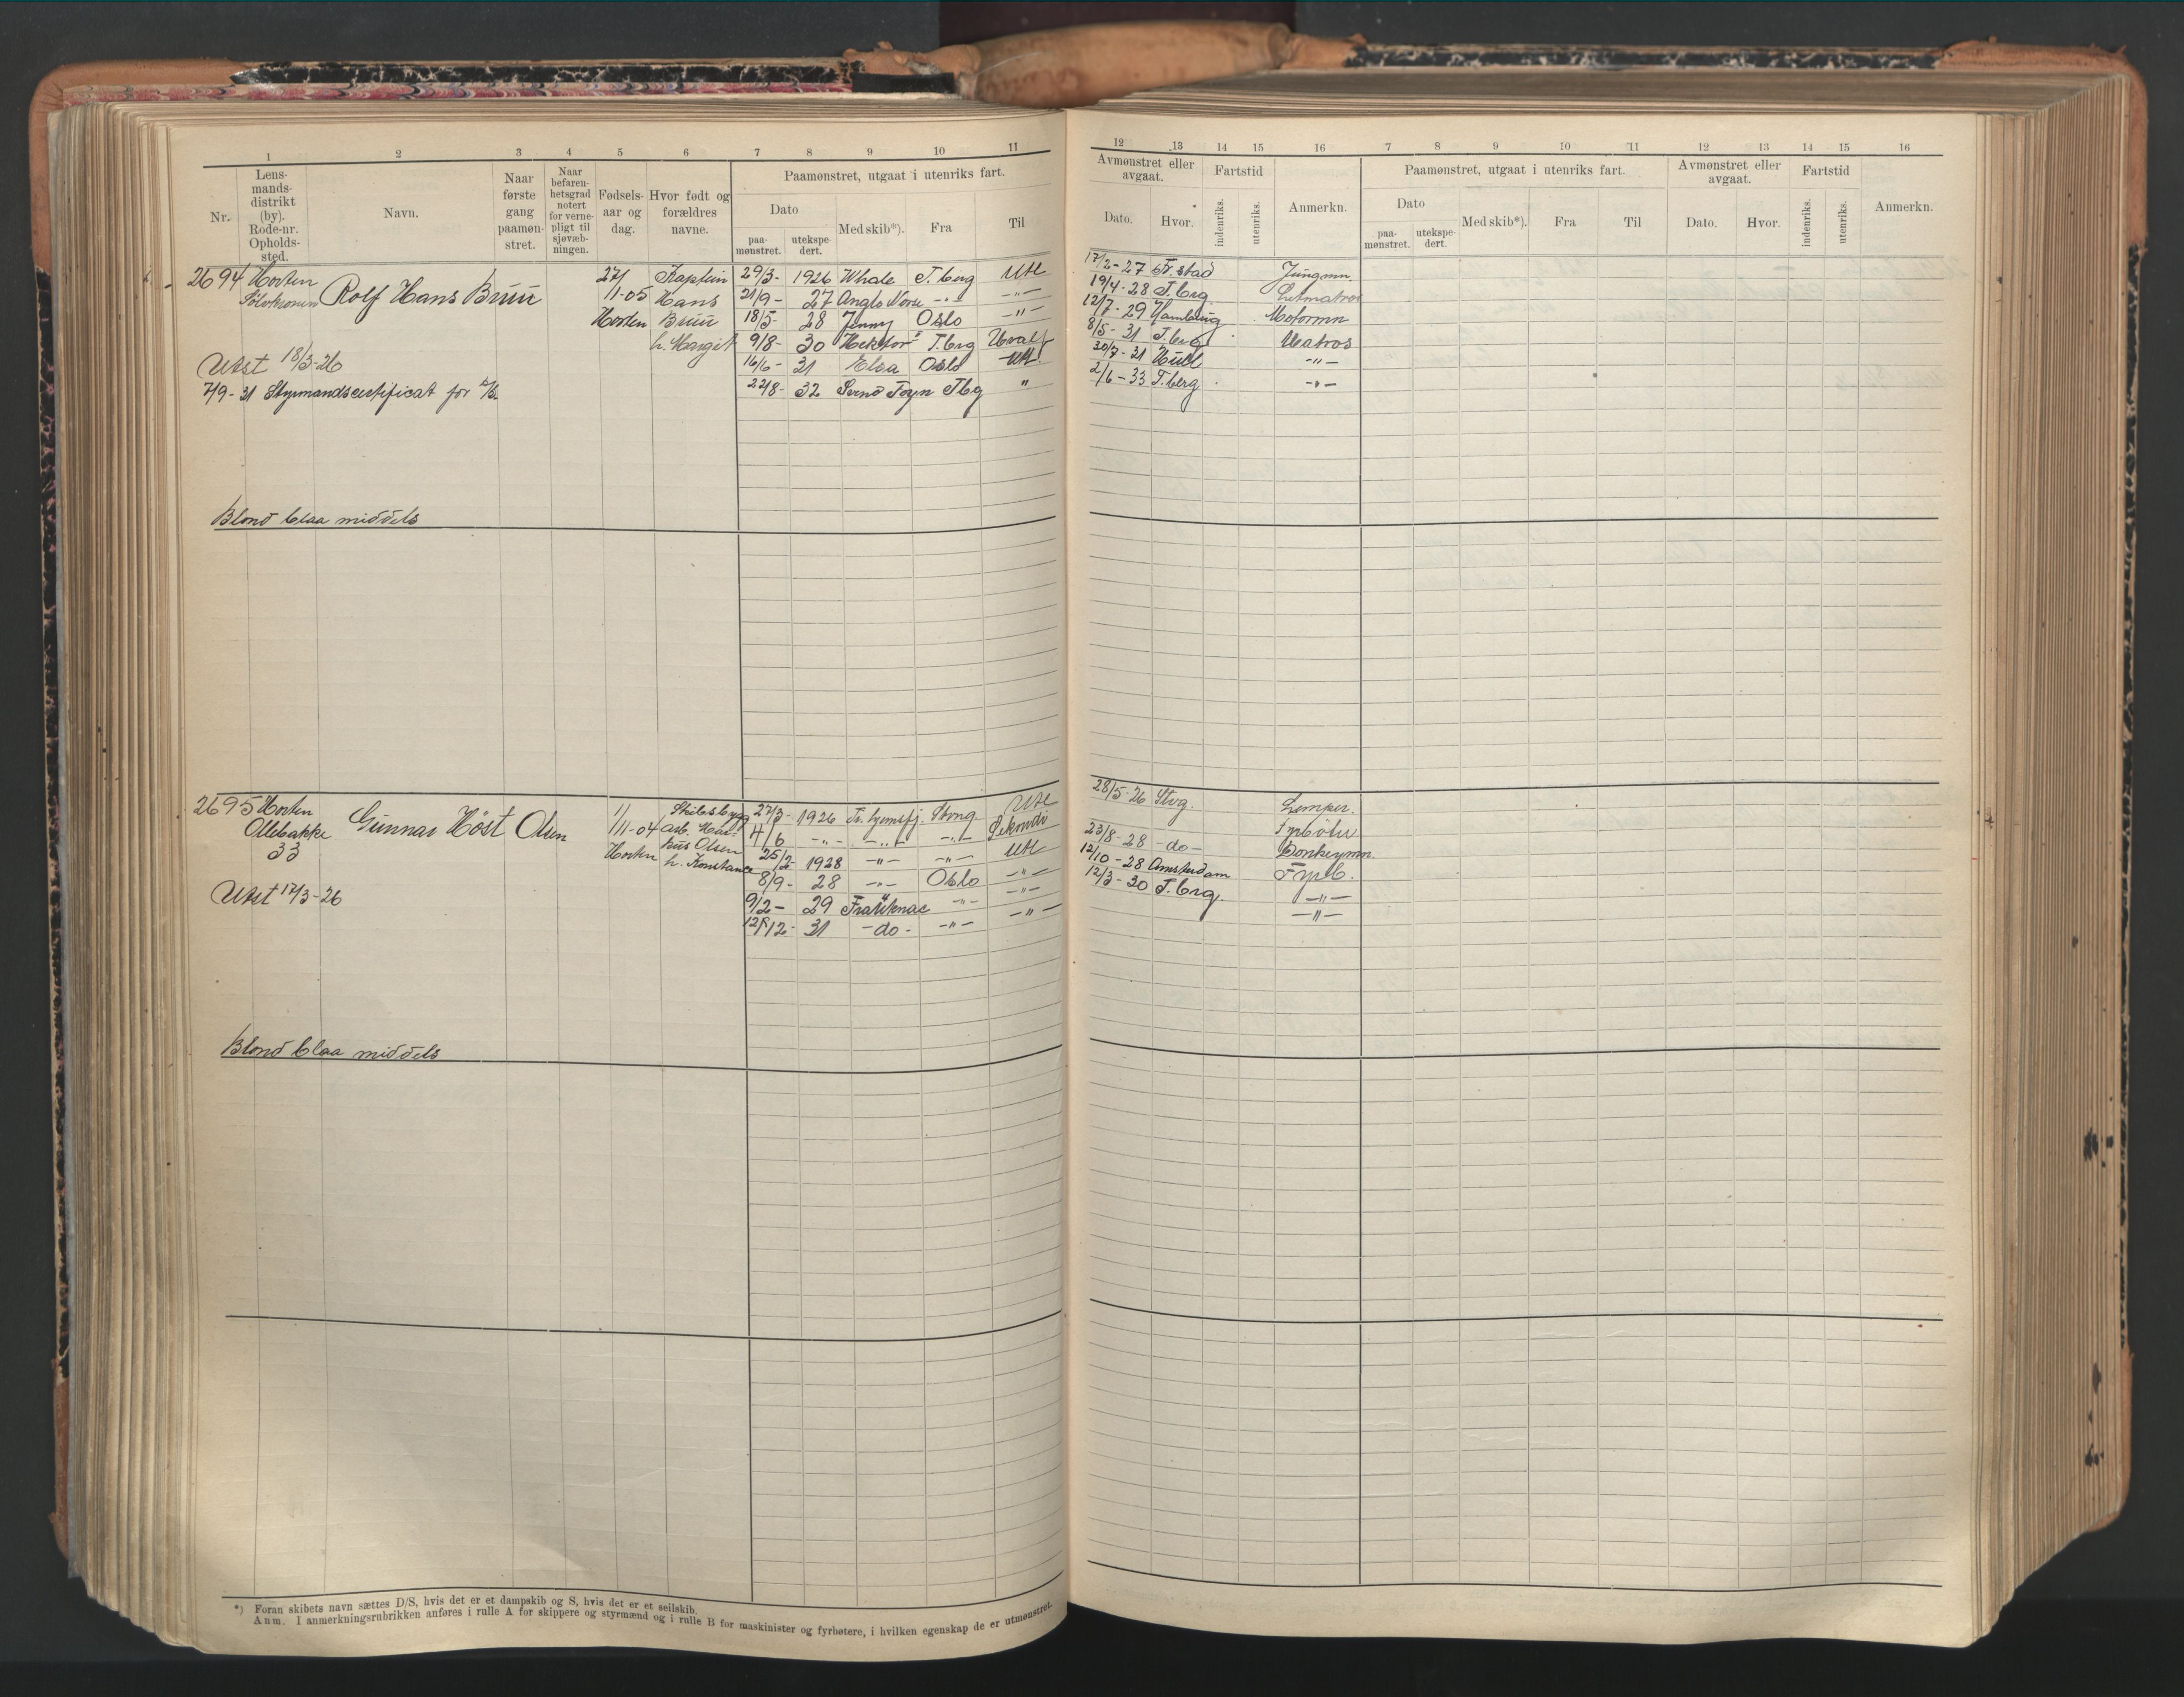 1 2 3 4 5 6 7 8 9 10 11
Nr.
Lens-
mands-
distrikt
(by).
Rode-nr.
Opholds-
sted.
Navn.
Naar
første
gang
paamøn-
stret.
Naar
befaren-
hetsgrad
notert
for verne-
pligt til
sjøvæb-
ningen.
Fødsels-
aar og
dag.
Hvor født og
forældres
navne.
Paamønstret, utgaat i utenriks fart.
Dato
paa-
mønstret.
utekspe-
dert.
Med skib*).
Fra
Til
2694 Horten Rolf Hans Bruu 27/ Kaptein 29/3- 1926 Whale T.berg Utl
11-05 Hans 21/9- 27 Anglo Norse -"- -"-
Horten Bruu 18/5- 28 Jenny Oslo -"-
h. Margit 9/8- 30 Hektor T.brg Hvalf
Utst 18/3-26 16/6- 31 Elsa Oslo Utl.
7/9-31 Styrmandscertifikat for 22/8- 32 Svend Foyn Tbg "
Blond blaa middels
2695 Horten Gunnar Höst Olsen 1/ Skibsbygg 27/3- 1926 Utl
Ollebakke 11-04 arb. 4/6 -"- -"- -"- Sekondi
33 Horten Olsen 25/2- 1928 -"- -"- Utl
h. Konstance 8/9- 28 -"- Oslo -"-
Utst 17/3-26 9/2- 29 -"- -"-
12/12- 31 -do- -"- -"-
Blond blaa middels
*) Foran skibets navn sættes D/S, hvis det er et dampskib og S, hvis det er et seilskib.
Anm. I anmerkningsrubrikken anføres i rulle A for skippere og styrmænd og i rulle B for maskinister og fyrbøtere, i hvilken egenskap de er utmønstret.
12 13 14 15 16 7 8 9 10 11 12 13 14 15 16
Avmønstret eller
avgaat.
Dato.
Hvor.
Fartstid
indenriks.
utenriks.
Anmerkn.
Paamønstret, utgaat i utenriks fart.
Dato
paa-
mønstret.
utekspe-
dert.
Med skib*).
Fra
Til
Avmønstret eller
avgaat.
Dato.
Hvor.
Fartstid
indenriks.
utenriks.
Anmerkn.
17/2-27 Fr.stad Jungmn.
19/4-28 T.brg Letmatros
12/7-29 Hamburg Motormn
8/5-31 T.berg Matros
30/7-31 Hull -"-
2/6-33 T.berg -"-
28/5-26 Stvg. Lemper.
Fyrböter
23/8-28 -do- Donkeymn.
12/10-28 Amsterdam Fyrb.
12/3-30 T.brg. -"-
-"-